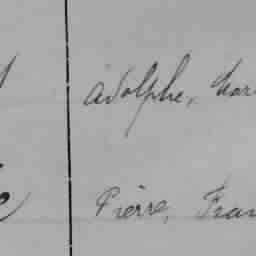 Adolphe, Mar
Pierre, Fran